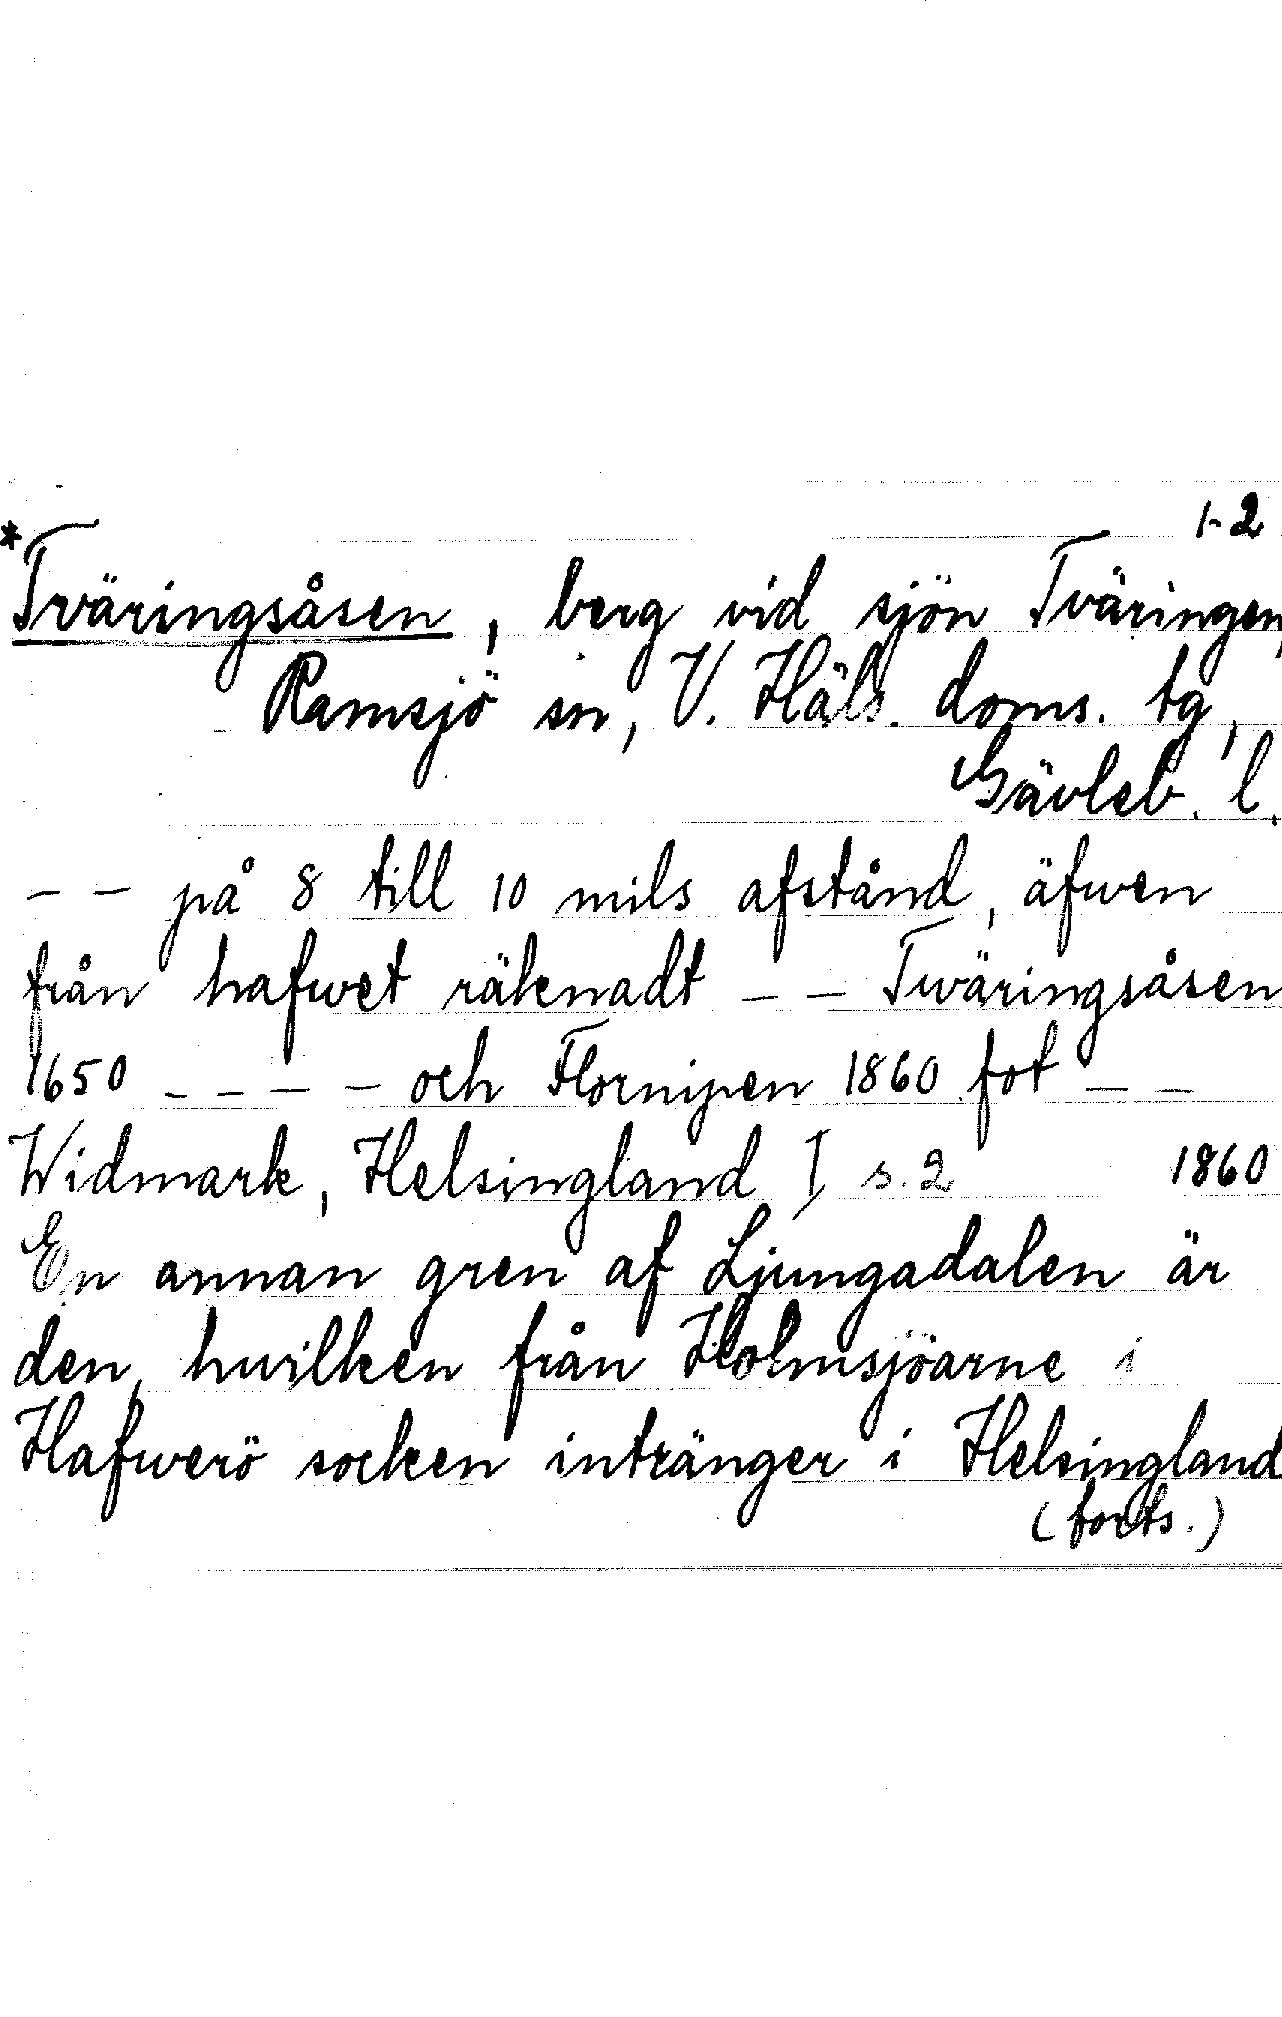 1-2
*Tväringsåsen, berg vid sjön Tväringen,
Ramsjö sn, V. Häls. doms. tg,
Gävleb. l.
– – på 8 till 10 mils afstånd, äfwen
från hafwet räknadt – – Twäringsåsen
1650 – – – – och Flornipen 1860 fot – –
Widmark, Helsingland I s. 2 1860
En annan gren af Ljungadalen är
den, hwilken från Holmsjöarne i
Hafwerö socken intränger i Helsingland
(forts.)